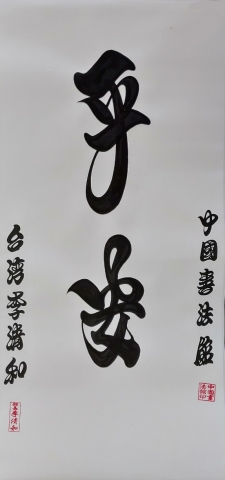 中國書法館
平安
台灣李清和